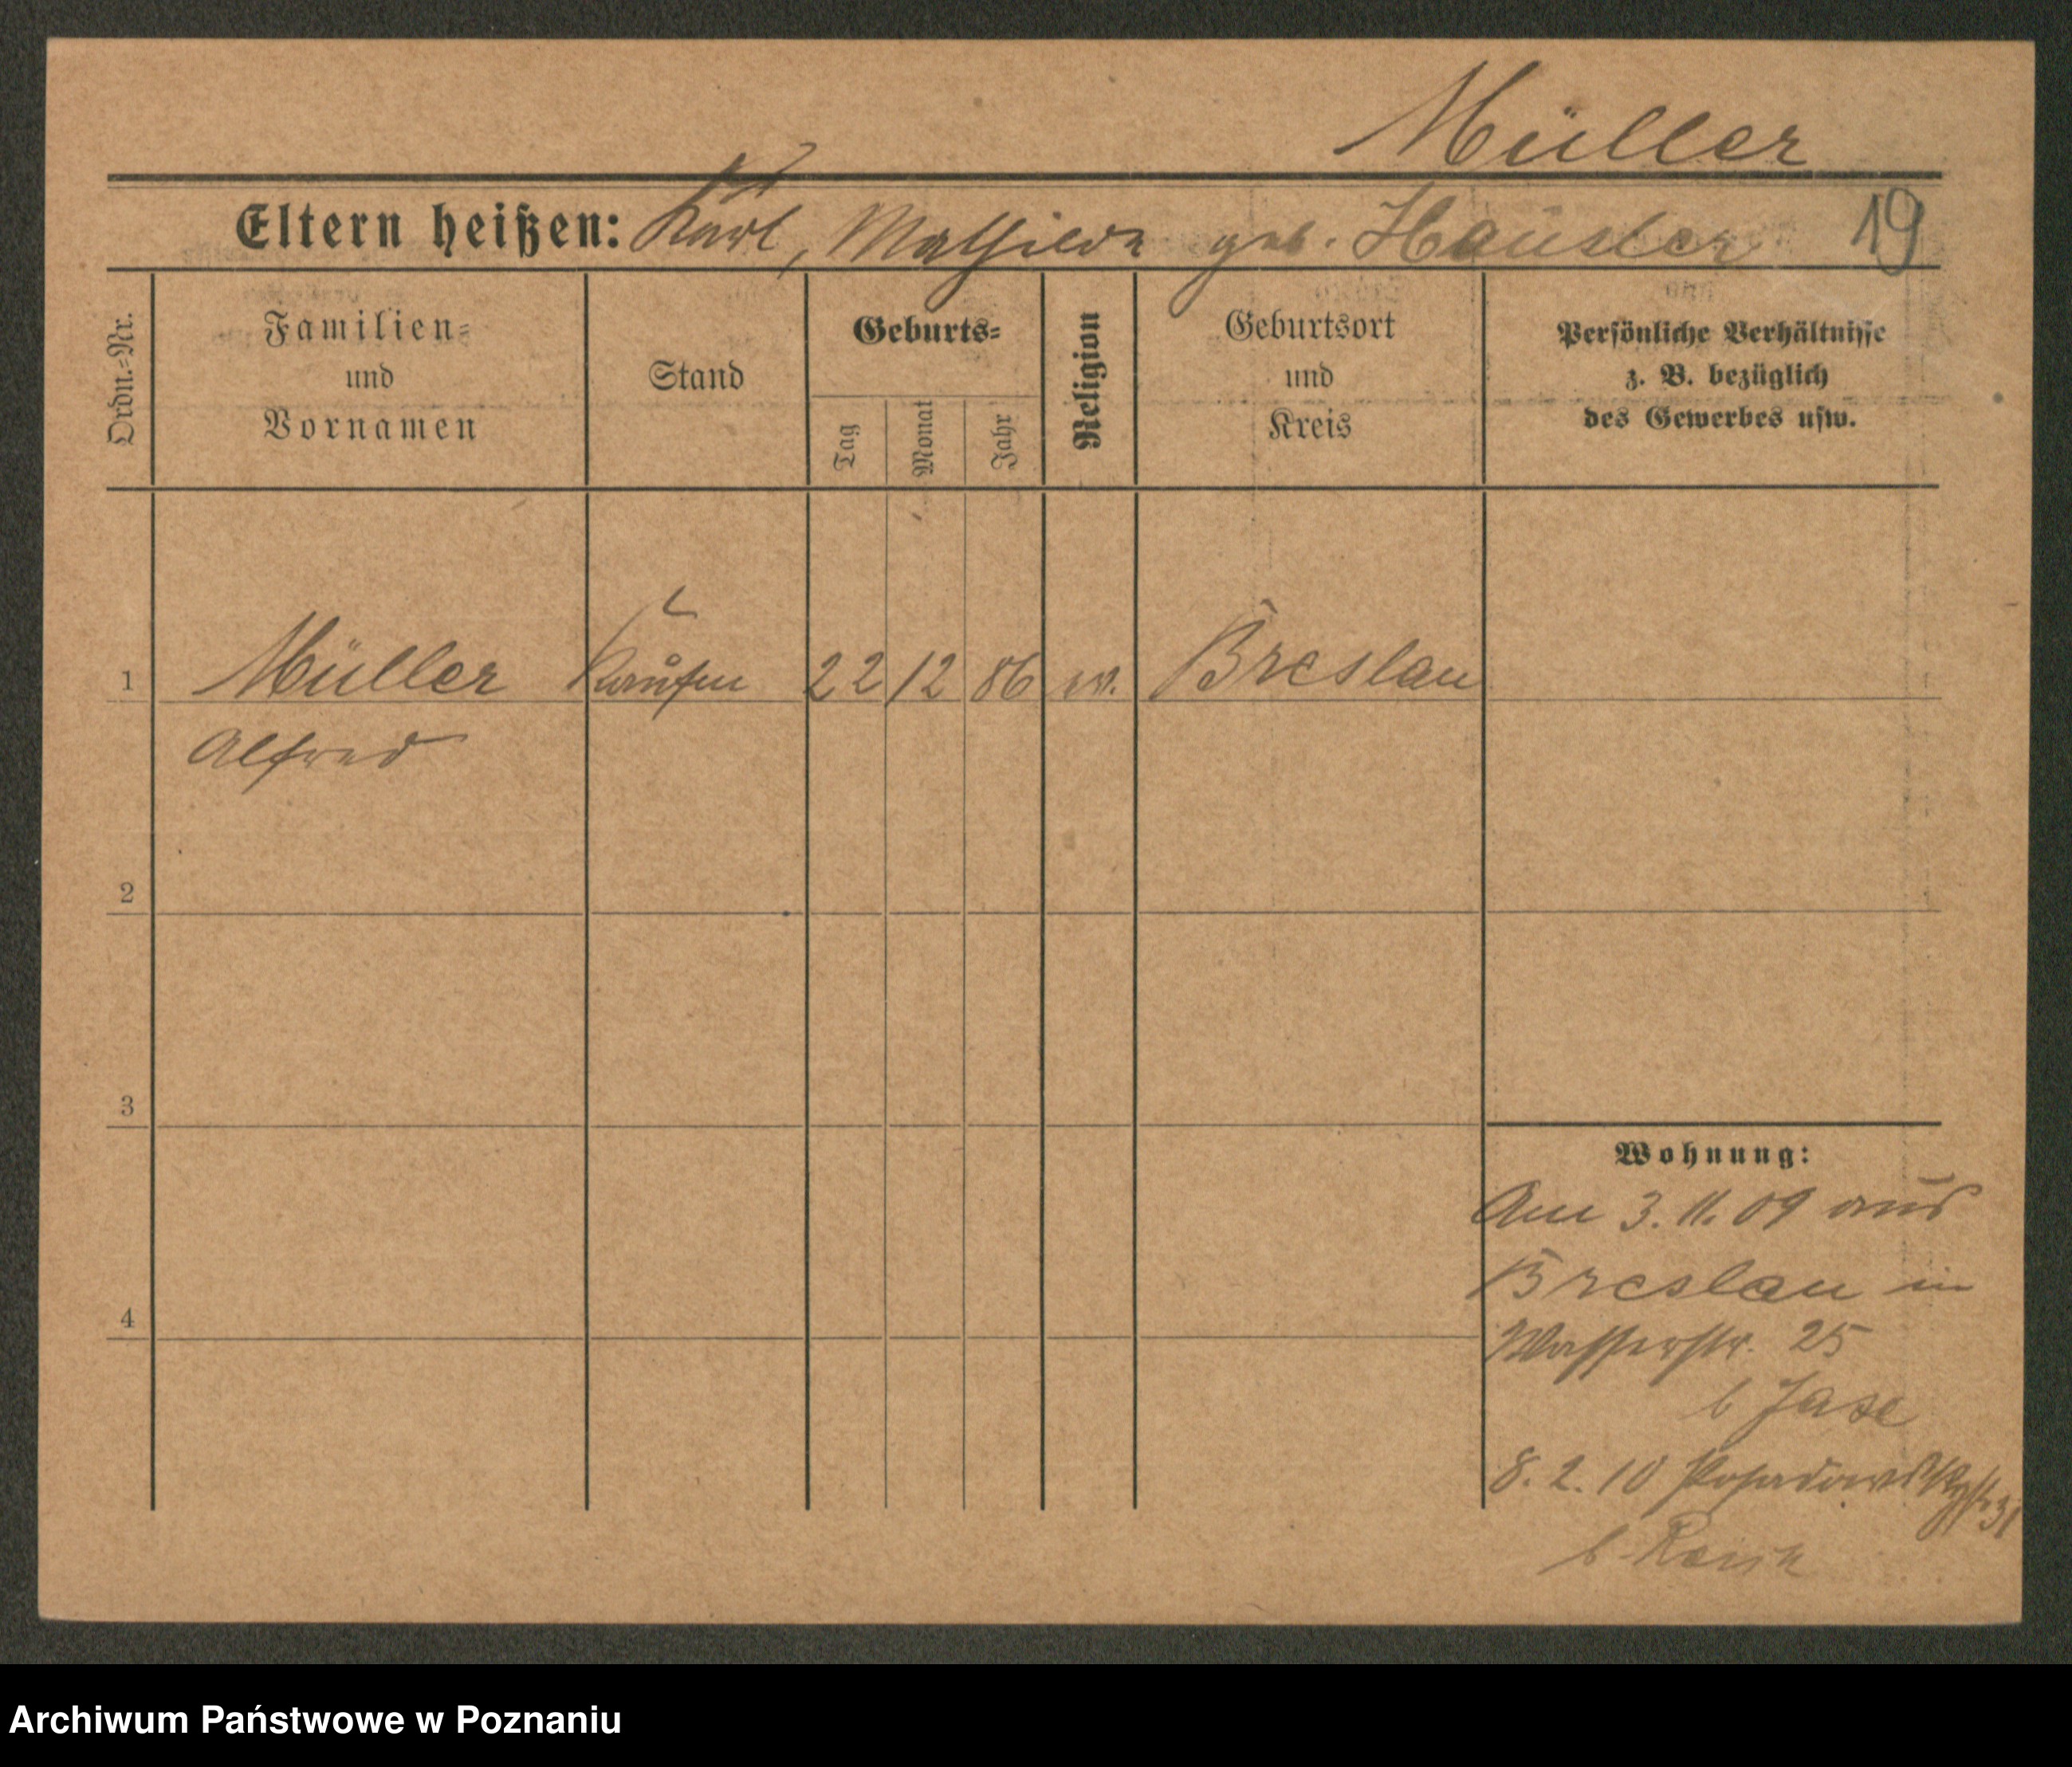 Müller
Eltern heißen: Karl, Mathilde geb. Häusler 19
Ordn.=Nr.
Familien=
und
Vornamen
Stand
Geburts=
Tag
Monat
Jahr
Religion
Geburtsort
und
Kreis
Persönliche Verhältnisse
z. B. bezüglich
des Gewerbes usw.
1 Müller Kaufm 22 12 86 ev. Breslau
Alfred
2
3
4
Wohnung:
Am 3. 11. 09 aus
Breslau in
Wasserstr. 25
b Jase
8. 2. 10 31
b
Archiwum Państwowe w Poznaniu